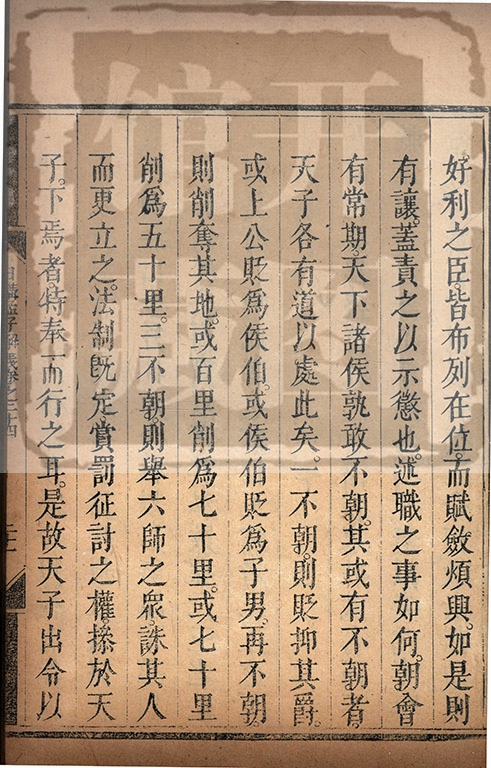 好利之臣。皆布列在位。而賦斂煩興。如是則
有讓。蓋責之以示懲也。述職之事如何。朝會
有常期。天下諸侯孰敢不朝。其或有不朝者。
天子各有道以處此矣。一不朝。則貶抑其爵。
或上公貶爲侯伯。或侯伯貶爲子男。再不朝
則削奪其地。或百里削爲七十里。或七十里
削爲五十里。三不朝。則舉六師之衆。誅其人
而更立之。法制既定。賞罰征討之權。操於天
子。下焉者。特奉而行之耳。是故天子出令以